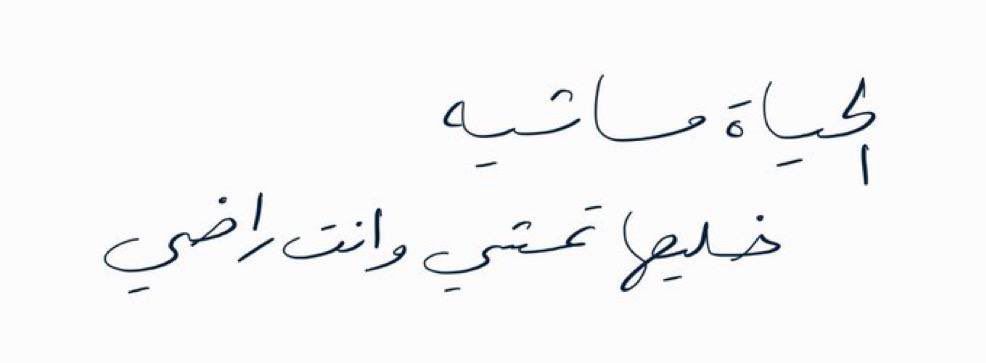 الحياة ماشيه
خليها تمشي وانت راضي